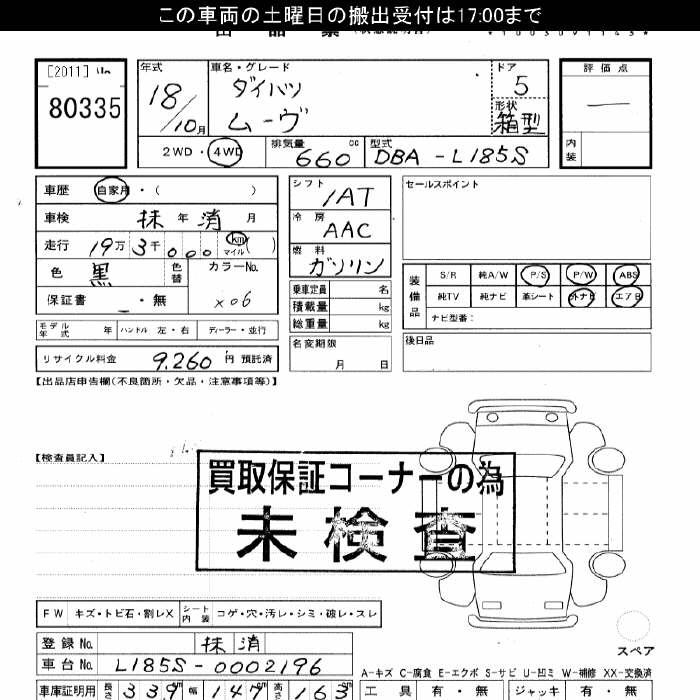 この車両の土曜日の搬出受付は17:00まで
出品票
[2011]
80335
年式 車名・グレード ドア 評価点
18/10月 ダイハツ 5
ムーヴ 形状 箱型 —
2WD・4WD 排気量 660 cc 型式 DBA-L185S 内装
車歴 自家用・( )
車検 抹 年 消 月
走行 19万3千000 km マイル ( )
色 黒 色替 カラーNo.
保証書 ・無 X06
モデル年式 年 ハンドル 左・右 ディーラー・並行
リサイクル料金 9.260円 預託済
シフト 1AT
冷房 AAC
燃料 ガソリン
乗車定員 名
積載量 kg
総重量 kg
名変期限
月 日
セールスポイント
装備品 S/R 純A/W P/S P/W ABS
純TV 純ナビ 革シート 外ナビ エアB
ナビ型番:
後日品
【出品店申告欄(不良箇所・欠品・注意事項等)】
【検査員記入】
買取保証コーナーの為
未検査
FW キズ・トビ石・割レX シート内装 コゲ・穴・汚レ・シミ・破レ・スレ
スペア
登録No. 抹消
車台No. L185S-0002196
A-キズ C-腐食 E-エクボ S-サビ U-凹ミ W-補修 XX-交換済
車庫証明用 長さ 339 幅 147 高さ 163
工具 有・無 ジャッキ 有・無